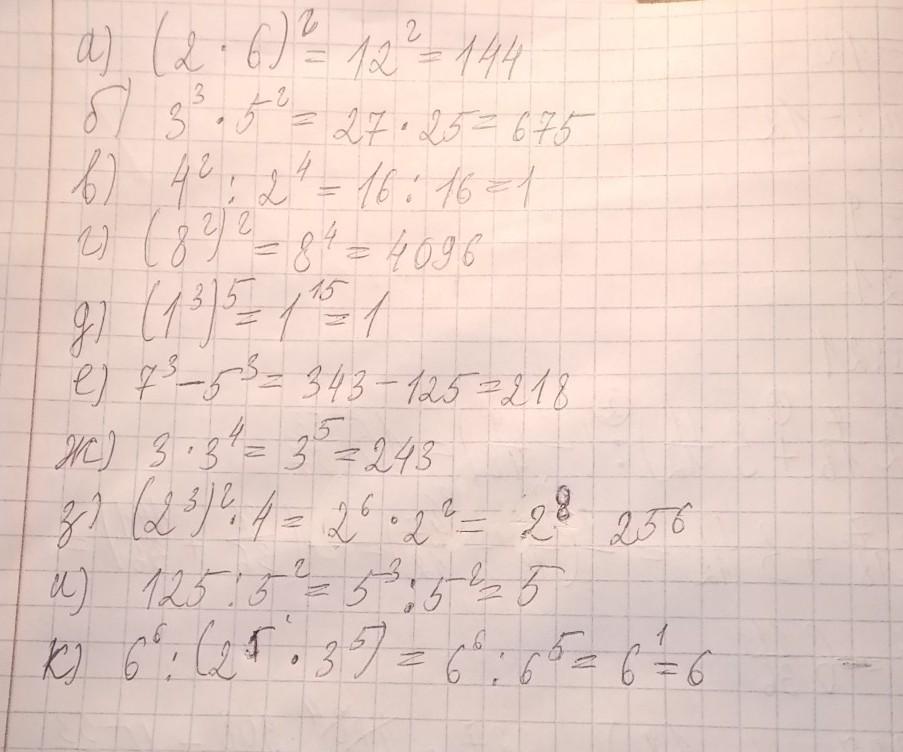 а) (2 · 6)² = 12² = 144
б) 3³ · 5² = 27 · 25 = 675
в) 4² : 2⁴ = 16 : 16 = 1
г) (8²)² = 8⁴ = 4096
д) (1³)⁵ = 1¹⁵ = 1
е) 7³ - 5³ = 343 - 125 = 218
ж) 3 · 3⁴ = 3⁵ = 243
з) (2³)² · 4 = 2⁶ · 2² = 2⁸ 256
и) 125 : 5² = 5³ : 5² = 5
к) 6⁶ : (2⁵ · 3⁵) = 6⁶ : 6⁵ = 6¹ = 6